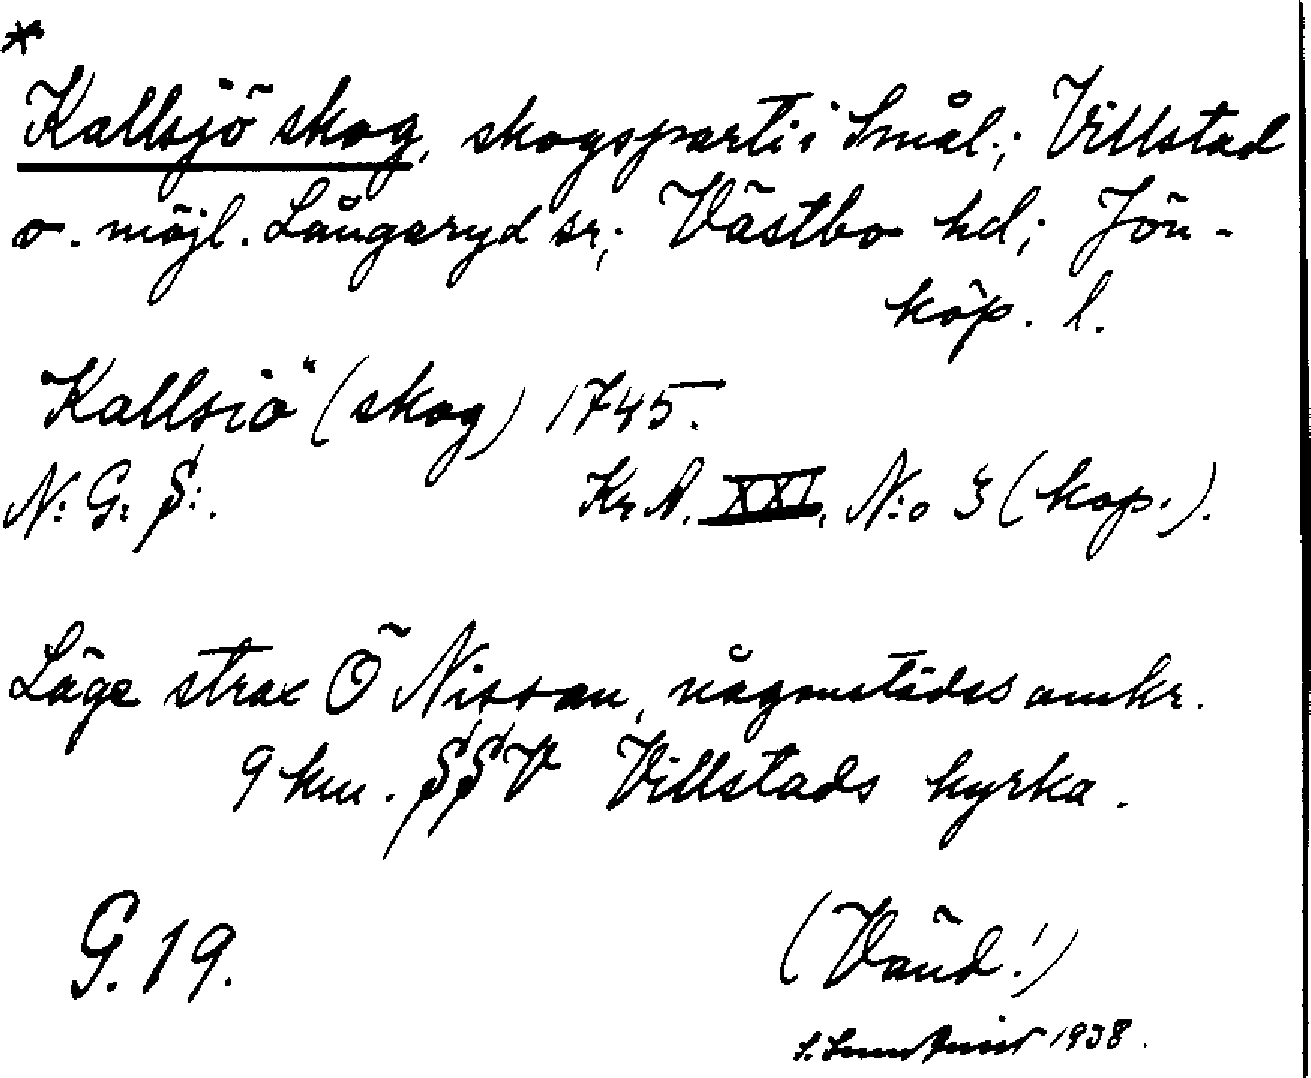 *
Kallsjö skog, skogsparti i Smål.; Villstad
o. möjl. Långaryd sr; Västbo hd; Jön-
köp. l.
Kallsiö (skog) 1745.
N: G: S:. Kr A. XXI. N:o 3 (kop.).
Läge strax Ö Nissan, någonstädes omkr.
9 km. SSV Villstads kyrka.
G. 19. (Vänd!)
1938.